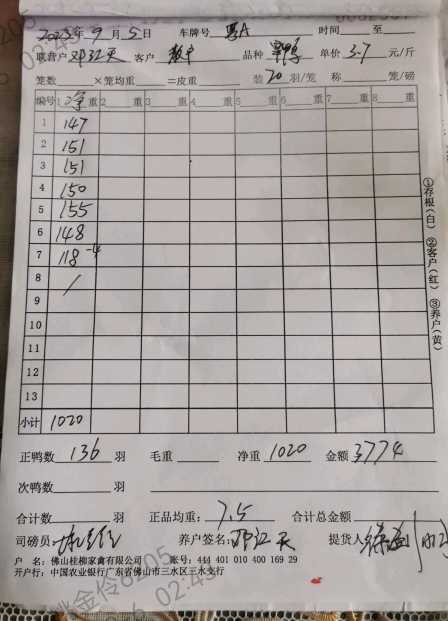 2023年9月5日 车牌号 粤A 时间 至
联营户 邓江天 客户 散户 品种 单价 3.7 元/斤
笼数 ×笼均重 =皮重 装20羽/笼 称 笼/磅
编号 1净重 2 重 3 重 4 重 5 重 6 重 7 重 8 重
1 147
2 151
3 151
4 150
5 155
6 148
7 118 -4
8 /
9
10
11
12
13
小计 1020
①存根(白) ②客户(红) ③养户(黄)
正鸭数 136 羽 毛重 净重 1020 金额 3774
次鸭数 羽
合计数 羽 正品均重: 7.5 合计总金额
司磅员: 养户签名: 邓江天 提货人
户 名: 佛山桂柳家禽有限公司 账号: 444 401 010 400 169 29
开户行: 中国农业银行广东省佛山市三水区三水支行